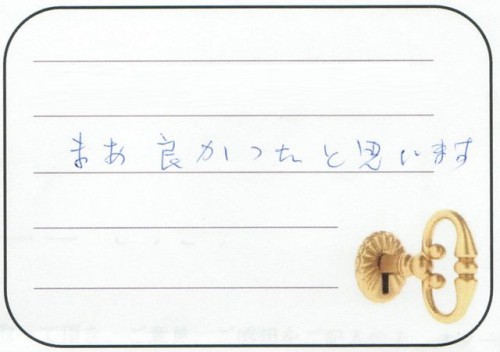 まあ良かったと思います